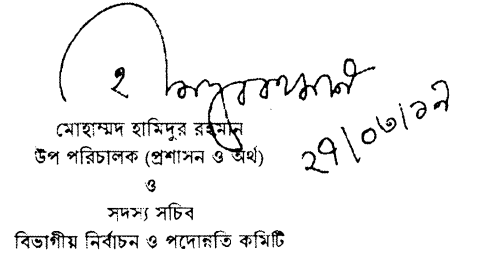 ২৭/০৩/১৭
মোহাম্মদ হামিদুর রহমান
উপ পরিচালক (প্রশাসন ও অর্থ)
ও
সদস্য সচিব
বিভাগীয় নির্বাচন ও পদোন্নতি কমিটি